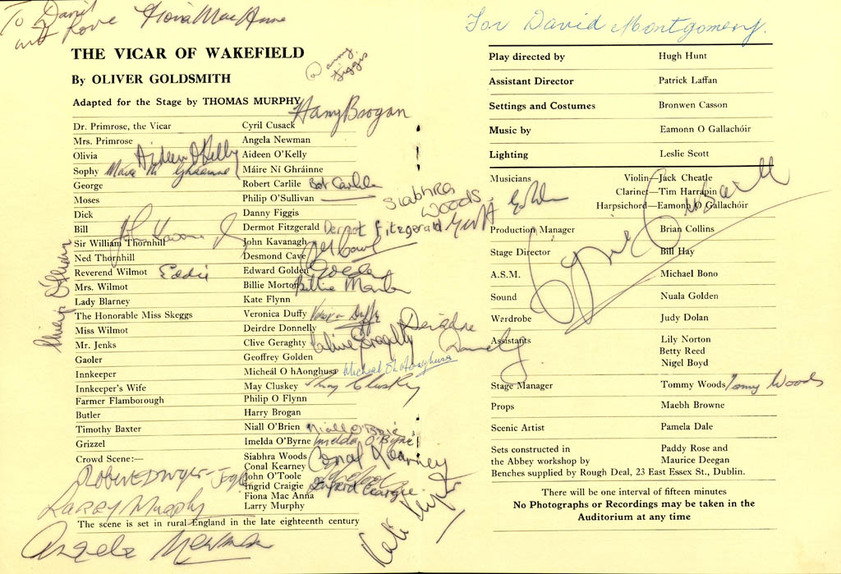 To David
with love Fiona Mac Anna
THE VICAR OF WAKEFIELD
By OLIVER GOLDSMITH
Danny Figgis
Adapted for the Stage by THOMAS MURPHY
Harry Brogan
Dr. Primrose, the Vicar Cyril Cusack
Mrs. Primrose Angela Newman
Olivia Aideen O'Kelly Aideen O'Kelly
Sophy Máire Ní Ghráinne Máire Ní Ghráinne
George Robert Carlile Bob Carlile
Moses Philip O'Sullivan
Siabhra Woods
Dick Danny Figgis
Bill Dermot Fitzgerald Dermot Fitzgerald
Sir William Thornhill John Kavanagh
Ned Thornhill Desmond Cave
Reverend Wilmot Eddie Edward Golden Golden
Mrs. Wilmot Billie Morton Billie Morton
Lady Blarney Kate Flynn
The Honorable Miss Skeggs Veronica Duffy
Miss Wilmot Deirdre Donnelly Deirdre Donnelly
Mr. Jenks Clive Geraghty Clive Geraghty
Gaoler Geoffrey Golden
Innkeeper Micheál O hAonghusa Micheál O hAonghusa
Innkeeper's Wife May Cluskey May Cluskey
Farmer Flamborough Philip O Flynn
Butler Harry Brogan
Timothy Baxter Niall O'Brien Niall O'Brien
Grizzel Imelda O'Byrne Imelda O'Byrne
Crowd Scene:— Siabhra Woods
Conal Kearney Conal Kearney
John O'Toole
Ingrid Craigie Ingrid Craigie
Fiona Mac Anna
Larry Murphy
Larry Murphy
The scene is set in rural England in the late eighteenth century
Angela Newman
For David Montgomery.
Play directed by Hugh Hunt
Assistant Director Patrick Laffan
Settings and Costumes Bronwen Casson
Music by Eamonn O Gallachóir
Lighting Leslie Scott
Musicians Violin—Jack Cheatle
Clarinet—Tim Harrapin
Harpsichord—Eamonn O Gallachóir
Cyril Cusack
Production Manager Brian Collins
Stage Director Bill Hay
A.S.M. Michael Bono
Sound Nuala Golden
Wardrobe Judy Dolan
Assistants Lily Norton
Betty Reed
Nigel Boyd
Stage Manager Tommy Woods Tommy Woods
Props Maebh Browne
Scenic Artist Pamela Dale
Sets constructed in Paddy Rose and
the Abbey workshop by Maurice Deegan
Benches supplied by Rough Deal, 23 East Essex St., Dublin.
There will be one interval of fifteen minutes
No Photographs or Recordings may be taken in the
Auditorium at any time